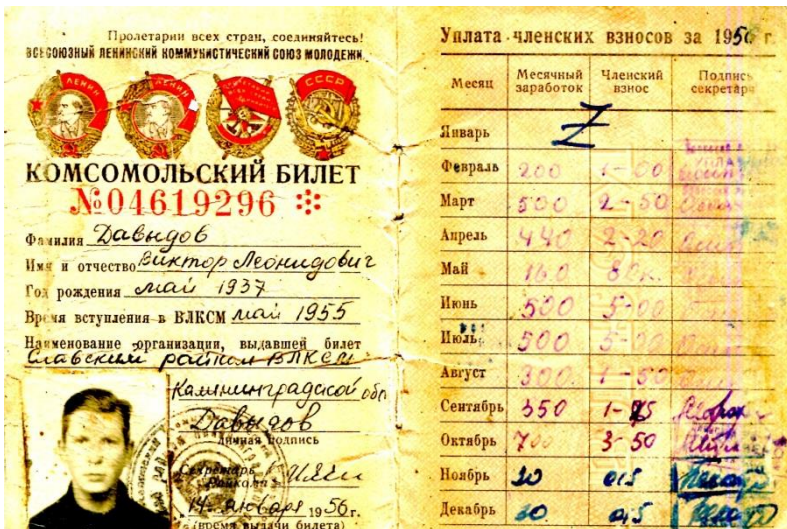 Пролетарии всех стран, соединяйтесь!
ВСЕСОЮЗНЫЙ ЛЕНИНСКИЙ КОММУНИСТИЧЕСКИЙ СОЮЗ МОЛОДЕЖИ
ЛЕНИН ЛЕНИН СССР
КОМСОМОЛЬСКИЙ БИЛЕТ
№04619296
Фамилия Давыдов
Имя и отчество Виктор Леонидович
Год рождения май 1937
Время вступления в ВЛКСМ май 1955
Наименование организации, выдавшей билет
Славский райком ВЛКСМ
Калининградской обл
Давыдов
личная подпись
Секретарь
Райкома
14 января 1956г.
(время выдачи билета)
Уплата членских взносов за 1956 г.
Месяц Месячный заработок Членский взнос Подпись секретаря
Январь Z
Февраль 200 1-00
Март 500 2-50
Апрель 440 2-20
Май 160 80к.
Июнь 500 5-00
Июль 500 5-00
Август 300 1-50
Сентябрь 350
Октябрь 700 3-50
Ноябрь 30
Декабрь 30